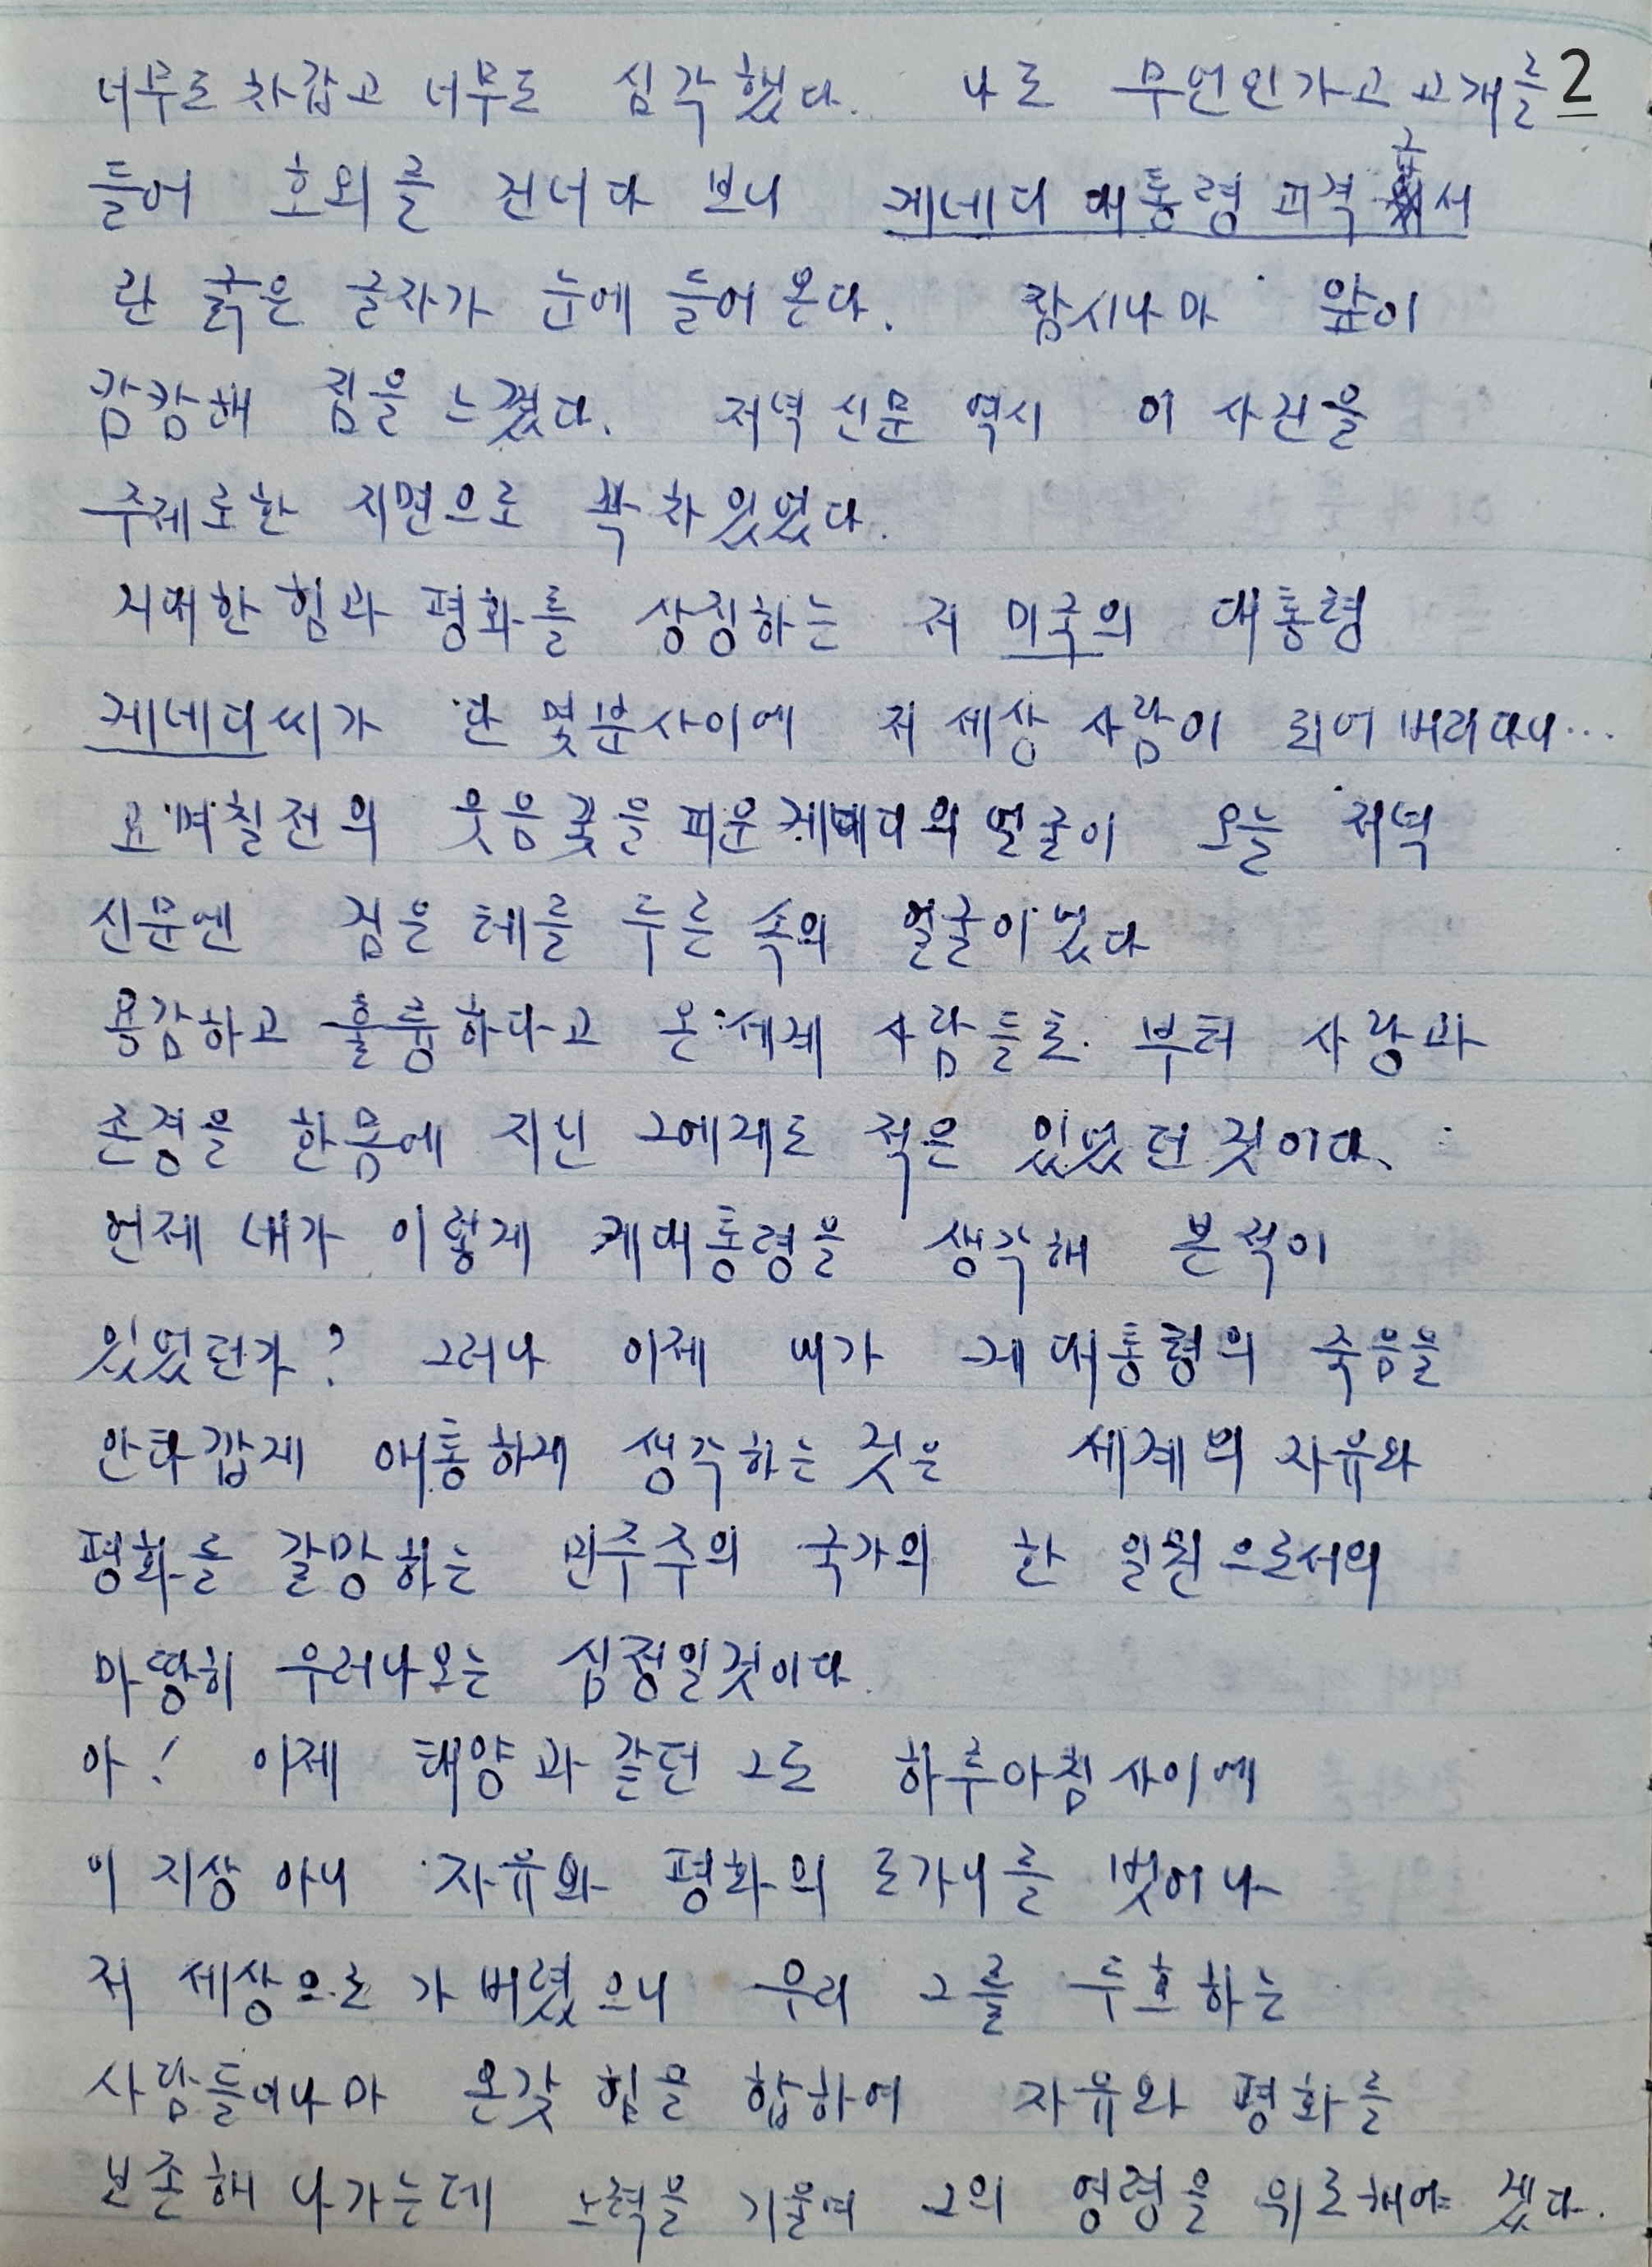 너무도 차갑고 너무도 심각했다. 나도 무언인가고 고개를 2
들어 호외를 건너다 보니 케네디 대통령 피격 서
란 굵은 글자가 눈에 들어 온다. 잠시나마 앞이
캄캄해 짐을 느꼈다. 저녁 신문 역시 이 사건을
주제로한 지면으로 꽉 차 있었다.
거대한 힘과 평화를 상징하는 저 미국의 대통령
케네디씨가 단 몇분사이에 저 세상 사람이 되어 버리다니...
고 며칠전의 웃음꽃을 피운 케네디의 얼굴이 오늘 저녁
신문엔 검은 테를 두른 속의 얼굴이었다
용감하고 훌륭하다고 온 세계 사람들로 부터 사랑과
존경을 한몸에 지닌 그에게도 적은 있었던 것이다.
언제 내가 이렇게 케대통령을 생각해 본 적이
있었던가? 그러나 이제 내가 케대통령의 죽음을
안타깝게 애통하게 생각하는 것은 세계의 자유와
평화를 갈망하는 민주주의 국가의 한 일원으로서의
마땅히 우러나오는 심정일것이다.
아! 이제 태양과 같던 그도 하루아침 사이에
이 지상 아니 자유와 평화의 도가니를 벗어나
저 세상으로 가 버렸으니 우리 그를 두호하는
사람들이나마 온갖 힘을 합하여 자유와 평화를
보존해 나가는데 노력을 기울여 그의 영령을 위로해야 겠다.